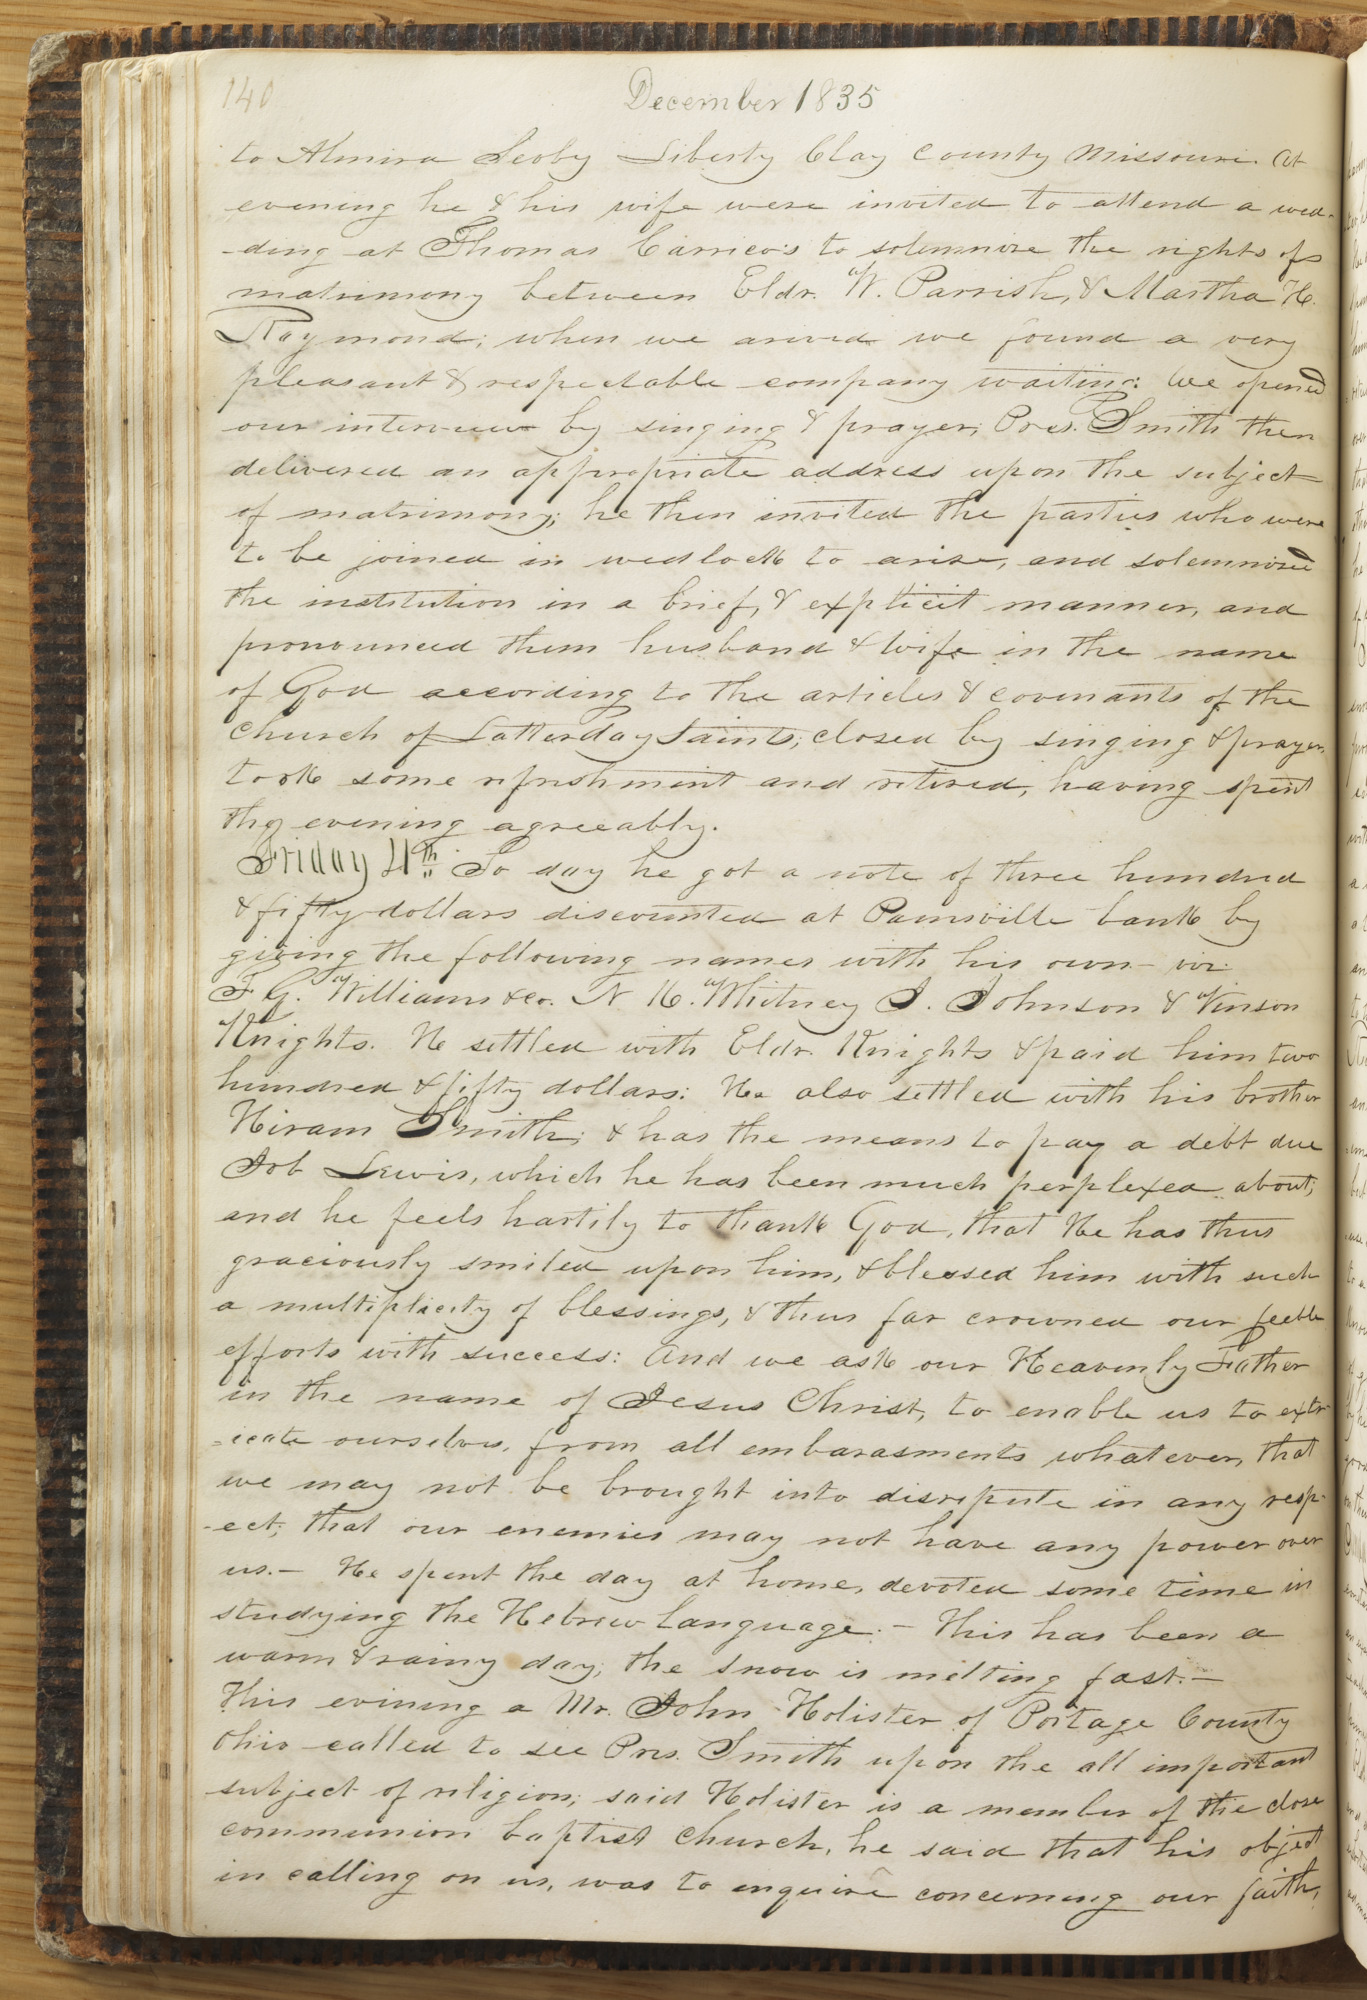 140
December 1835
to Almira Scoby Liberty Clay County Missouri. At
evening he & his wife were invited to attend a wed-
-ding at Thomas Carrico's to solemnize the rights of
matrimony between Eldr. W. Parrish, & Martha H.
Raymond; when we arived we found a very
pleasant & respectable company waiting: We opened
our interview by singing & prayer; Pres. Smith then
delivered an appropriate address upon the subject
of matrimony; he then invited the parties who were
to be joined in wedlock to arise, and solemnized
the institution in a brief, & explicit manner, and
pronounced them husband & wife in the name
of God according to the articles & covenants of the
church of Latterday Saints; closed by singing & prayer,
took some refreshment and retired, having spent
the evening agreeably.
Friday 4th. To day he got a note of three hundred
& fifty dollars discounted at Painsville bank by
giving the following names with his own- viz.
F. G. Williams & co. N K. Whitney J. Johnson & Vinson
Knights. He settled with Eldr. Knights & paid him two
hundred & fifty dollars: He also settled with his brother
Hiram Smith; & has the means to pay a debt due
Job Lewis, which he has been much perplexed about;
and he feels hartily to thank God, that He has thus
graciously smiled upon him, & blessed him with such
a multiplicity of blessings, & thus far crowned our feeble
efforts with success: And we ask our Heavenly Father
in the name of Jesus Christ, to enable us to extr-
=icate ourselvs, from all embarasments whatever, that
we may not be brought into disrepute in any resp-
-ect; that our enemies may not have any power over
us.- He spent the day at home, devoted some time in
studying the Hebrew language.- This has been a
warm & rainy day; the snow is melting fast.-
This evining a Mr. John Holister of Portage County
Ohio called to see Pres. Smith upon the all important
subject of religion; said Holister is a member of the close
communion baptist church, he said that his object
in calling on us, was to enquire concerning our faith,